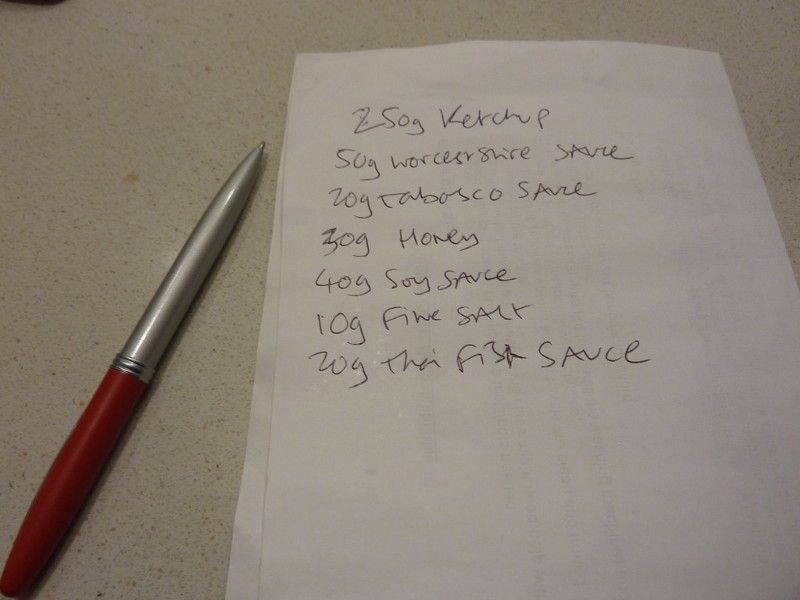 250g Ketchup
50g worcesrshire SAuce
20g Tabasco SAuce
30g Honey
40g Soy SAuce
10g Fine SALt
20g thai Fish SAUCE